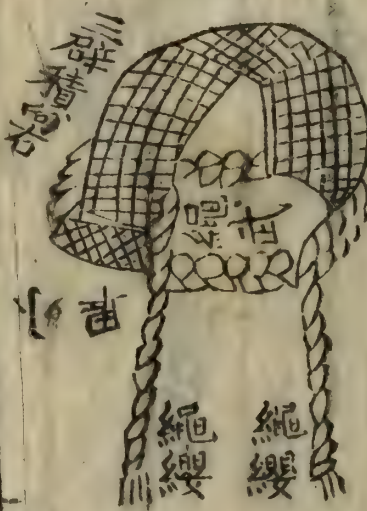 三辟積向右
繩武
外畢
繩纓
繩纓